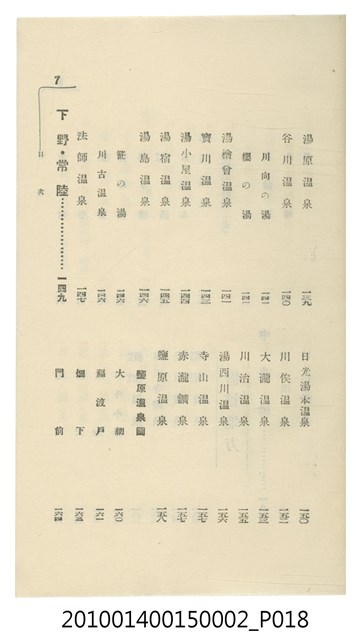 7
目次
湯原温泉 一三九
谷川温泉 一四〇
川向の湯 一四一
櫻の湯
湯檜曾温泉 一四一
寶川温泉 一四三
湯小屋温泉 一四四
湯宿温泉 一四五
湯島温泉 一四六
笹の湯 一四六
川古温泉 一四六
法師温泉 一四七
下野・常陸 一四九
日光湯本温泉 一五〇
川俣温泉 一五二
大瀧温泉 一五三
川治温泉 一五五
湯西川温泉 一五六
寺山温泉 一五七
赤瀧鑛泉 一五七
鹽原温泉 一五八
鹽原温泉圖
大網 一六〇
福渡戸 一六一
畑下 一六三
門前 一六四
201001400150002_P018